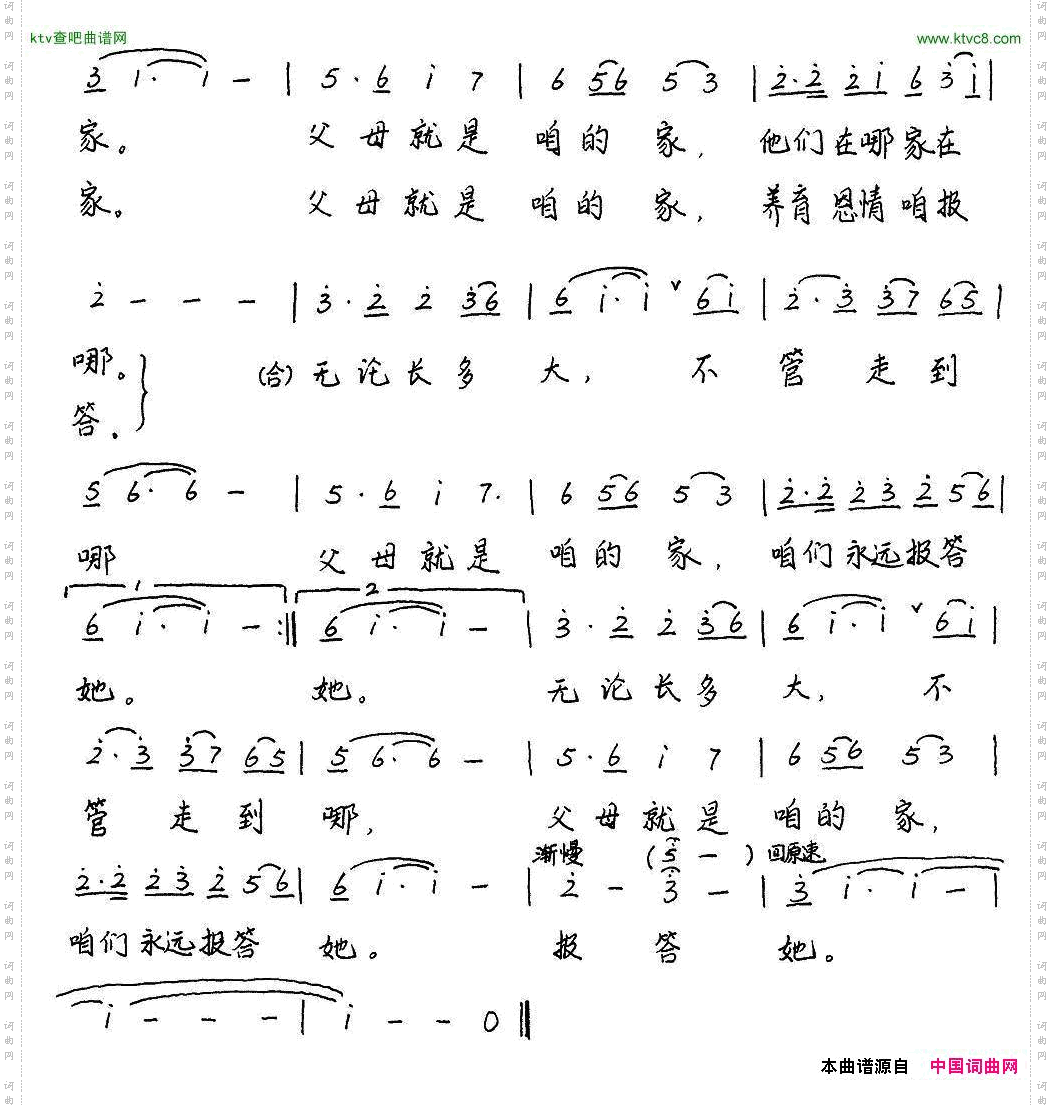 ktv查吧曲谱网 www.ktvc8.com
3 1· 1 — | 5· 6 i 7 | 6 56 5 3 | 2·2 2i 6 3 i |
家。 父母就是 咱的 家, 他们在哪家在
家。 父母就是 咱的 家, 养育恩情咱报
2 — — — | 3· 2 2 36 | 6 i· i ˅ 6i | 2· 3 37 65 |
哪。 (合) 无论长多 大, 不 管 走到
答.
5 6· 6 — | 5· 6 i 7. | 6 56 5 3 | 2·2 23 2 56 |
哪 父母就是 咱的 家, 咱们永远报答
1 2
6 i· i — :‖ 6 i· i — | 3· 2 2 36 | 6 i· i ˅ 6i |
她。 她。 无论长多 大, 不
2· 3 37 65 | 5 6· 6 — | 5· 6 i 7 | 6 56 5 3 |
管 走到 哪, 父母就是 咱的 家,
渐慢 (5 —) 回原速
2·2 23 2 56 | 6 i· i — | 2 — 3 — | 3 i· i — |
咱们永远报答 她。 报 答 她。
i — — — | i — — 0 ‖
本曲谱源自 中国词曲网
词曲网